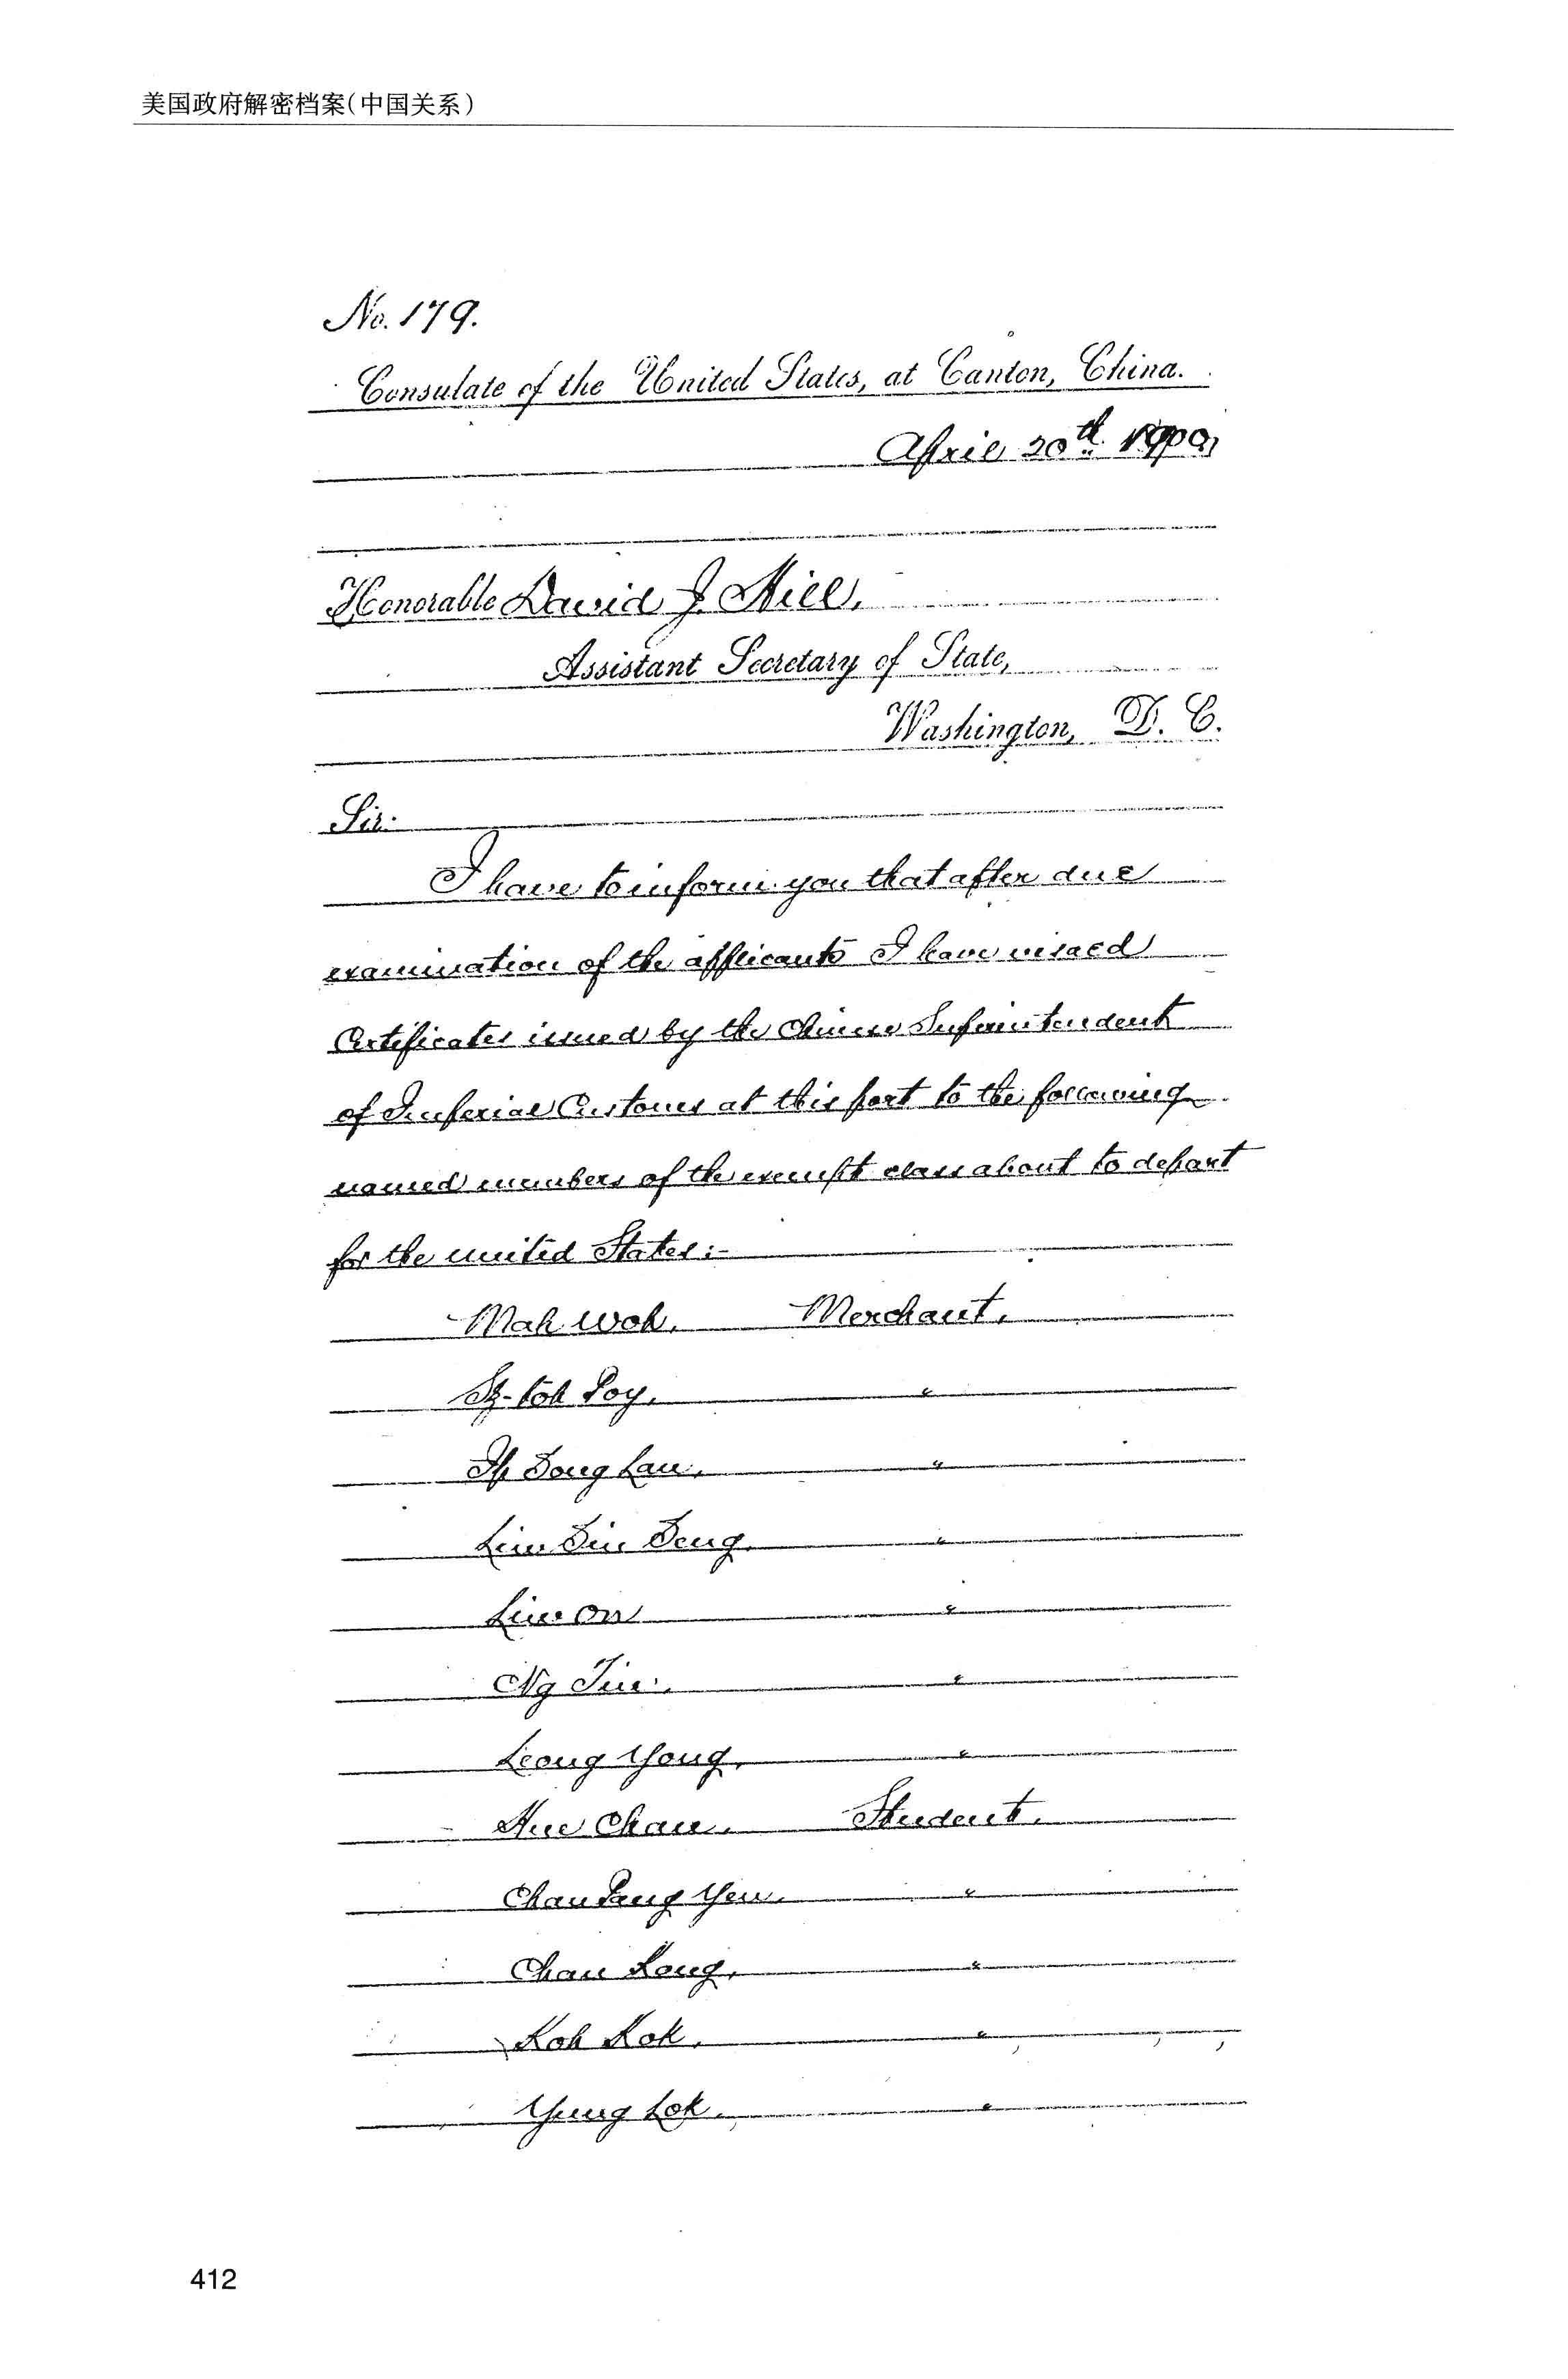 美国政府解密档案(中国关系)
No. 179.
Consulate of the United States, at Canton, China.
April 20th 1900,
Honorable David J. Hill,
Assistant Secretary of State,
Washington, D. C.
Sir:
I have to inform you that after due
examination of the applicants I have visaed
Certificates issued by the Chinese Superintendent
of Imperial Customs at this port to the following
named members of the exempt class about to depart
for the united States:-
Mah Woh, Merchant,
Sz-toh Poy, "
Ip Dong Lau, "
Lim Sin Seng, "
Lim On "
Ng Tin, "
Leong Yong, "
Hue Chau, Student,
Chau Pang Yeu, "
Chau Kong, "
Koh Kok, "
Yung Lok, "
412